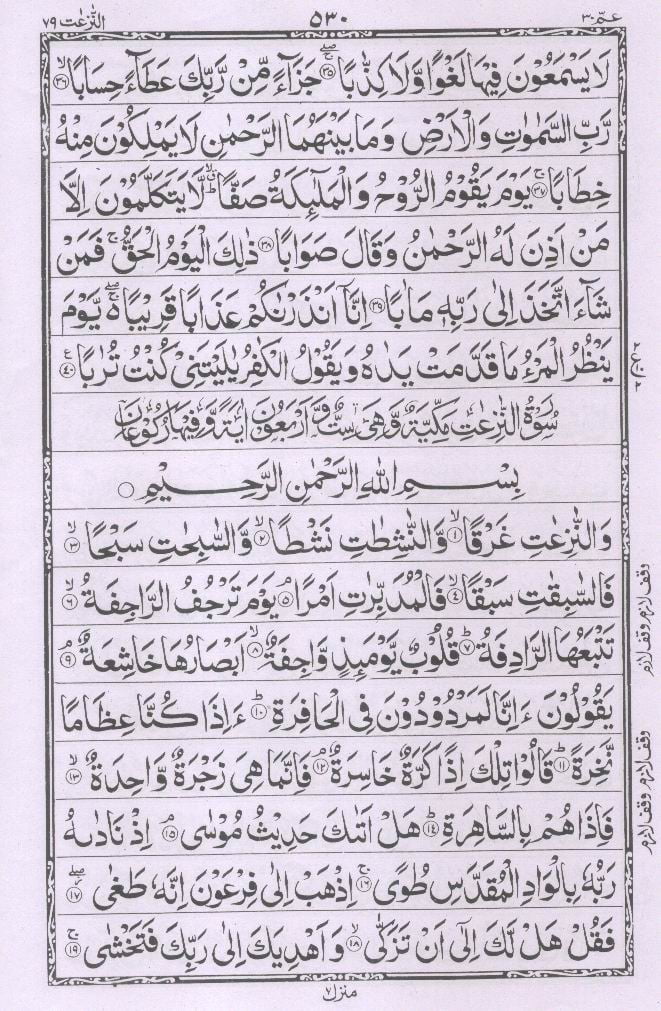 عمّ ٣٠ ٥٣٠ النّٰزعٰت ٧٩
لَا يَسْمَعُوْنَ فِيْهَا لَغْوًا وَّلَا كِذّٰبًا ۚ ﴿۳۵﴾ جَزَآءً مِّنْ رَّبِّكَ عَطَآءً حِسَابًا ۙ ﴿۳۶﴾
رَّبِّ السَّمٰوٰتِ وَالْاَرْضِ وَمَا بَيْنَهُمَا الرَّحْمٰنِ لَا يَمْلِكُوْنَ مِنْهُ
خِطَابًا ۚ ﴿۳۷﴾ يَوْمَ يَقُوْمُ الرُّوْحُ وَالْمَلٰٓئِكَةُ صَفًّا ۙۗ لَّا يَتَكَلَّمُوْنَ اِلَّا
مَنْ اَذِنَ لَهُ الرَّحْمٰنُ وَقَالَ صَوَابًا ﴿۳۸﴾ ذٰلِكَ الْيَوْمُ الْحَقُّ ۚ فَمَنْ
شَآءَ اتَّخَذَ اِلٰى رَبِّهٖ مَاٰبًا ﴿۳۹﴾ اِنَّآ اَنْذَرْنٰكُمْ عَذَابًا قَرِيْبًا ۚۖ يَّوْمَ
يَنْظُرُ الْمَرْءُ مَا قَدَّمَتْ يَدٰهُ وَيَقُوْلُ الْكٰفِرُ يٰلَيْتَنِيْ كُنْتُ تُرٰبًا ﴿۴۰﴾
٢ ع ٢
سُوْرَةُ النّٰزِعٰتِ مَكِّيَّةٌ وَّهِيَ سِتٌّ وَّاَرْبَعُوْنَ اٰيَةً وَّفِيْهَا رُكُوْعَانِ
بِسْمِ اللّٰهِ الرَّحْمٰنِ الرَّحِيْمِ ○
وَالنّٰزِعٰتِ غَرْقًا ۙ ﴿۱﴾ وَّالنّٰشِطٰتِ نَشْطًا ۙ ﴿۲﴾ وَّالسّٰبِحٰتِ سَبْحًا ۙ ﴿۳﴾
فَالسّٰبِقٰتِ سَبْقًا ۙ ﴿۴﴾ فَالْمُدَبِّرٰتِ اَمْرًا ۘ ﴿۵﴾ يَوْمَ تَرْجُفُ الرَّاجِفَةُ ۙ ﴿۶﴾
وقف لازم
تَتْبَعُهَا الرَّادِفَةُ ؕ ﴿۷﴾ قُلُوْبٌ يَّوْمَئِذٍ وَّاجِفَةٌ ۙ ﴿۸﴾ اَبْصَارُهَا خَاشِعَةٌ ۘ ﴿۹﴾
وقف لازم
يَقُوْلُوْنَ ءَاِنَّا لَمَرْدُوْدُوْنَ فِى الْحَافِرَةِ ؕ ﴿۱۰﴾ ءَاِذَا كُنَّا عِظَامًا
نَّخِرَةً ؕ ﴿۱۱﴾ قَالُوْا تِلْكَ اِذًا كَرَّةٌ خَاسِرَةٌ ۘ ﴿۱۲﴾ فَاِنَّمَا هِيَ زَجْرَةٌ وَّاحِدَةٌ ۙ ﴿۱۳﴾
وقف لازم
فَاِذَا هُمْ بِالسَّاهِرَةِ ؕ ﴿۱۴﴾ هَلْ اَتٰىكَ حَدِيْثُ مُوْسٰى ۘ ﴿۱۵﴾ اِذْ نَادٰىهُ
وقف لازم
رَبُّهٗ بِالْوَادِ الْمُقَدَّسِ طُوًى ۚ ﴿۱۶﴾ اِذْهَبْ اِلٰى فِرْعَوْنَ اِنَّهٗ طَغٰى ۖ ﴿۱۷﴾
فَقُلْ هَلْ لَّكَ اِلٰٓى اَنْ تَزَكّٰى ۙ ﴿۱۸﴾ وَاَهْدِيَكَ اِلٰى رَبِّكَ فَتَخْشٰى ۚ ﴿۱۹﴾
منزل ٧